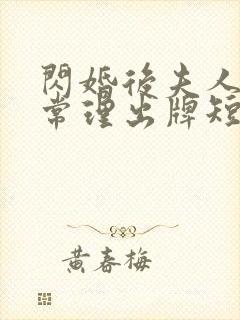 閃婚後夫人
常理出牌短
黃春梅